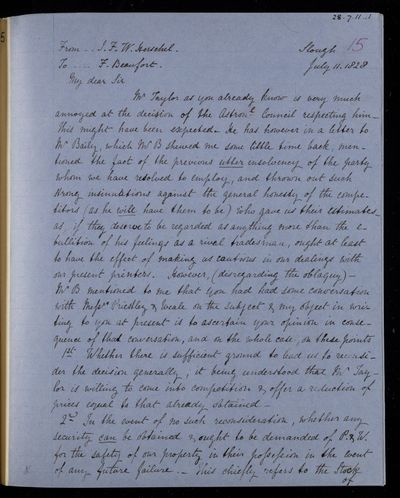 28.7.11.1
From . . J. F. W. Herschel. Slough 15
To . . . . F. Beaufort. July 11. 1828
My dear Sir
Mr Taylor as you already know is very much
annoyed at the decision of the Astronl Council respecting him_
This might have been expected_ He has however in a letter to
Mr Baily, which Mr B shewed me some little time back, men-
tioned the fact of the previous utter insolvency of the party
whom we have resolved to employ, and thrown out such
strong insinuations against the general honesty of the compe-
titors (as he will have them to be) who gave us their estimates_
as, if they deserve to be regarded as anything more than the e-
bullition of his feelings as a rival tradesman, ought at least
to have the effect of making us cautious in our dealings with
our present printers. However, (disregarding the obloquy) _
Mr B mentioned to me that you had had some conversation
with Messrs Priestley & Weale on the subject & my object in wri-
ting to you at present is to ascertain your opinion in conse-
quence of that conversation, and on the whole case, on these points
1st Whether there is sufficient ground to lead us to reconsi-
der the decision generally, it being understood that Mr Tay-
lor is willing to come into competition & offer a reduction of
prices equal to that already obtained _
2nd In the event of no such reconsideration, whether any
security can be obtained & ought to be demanded of P. & W.
for the safety of our property in their possession in the event
of any future failure. _ This chiefly refers to the Stock
of